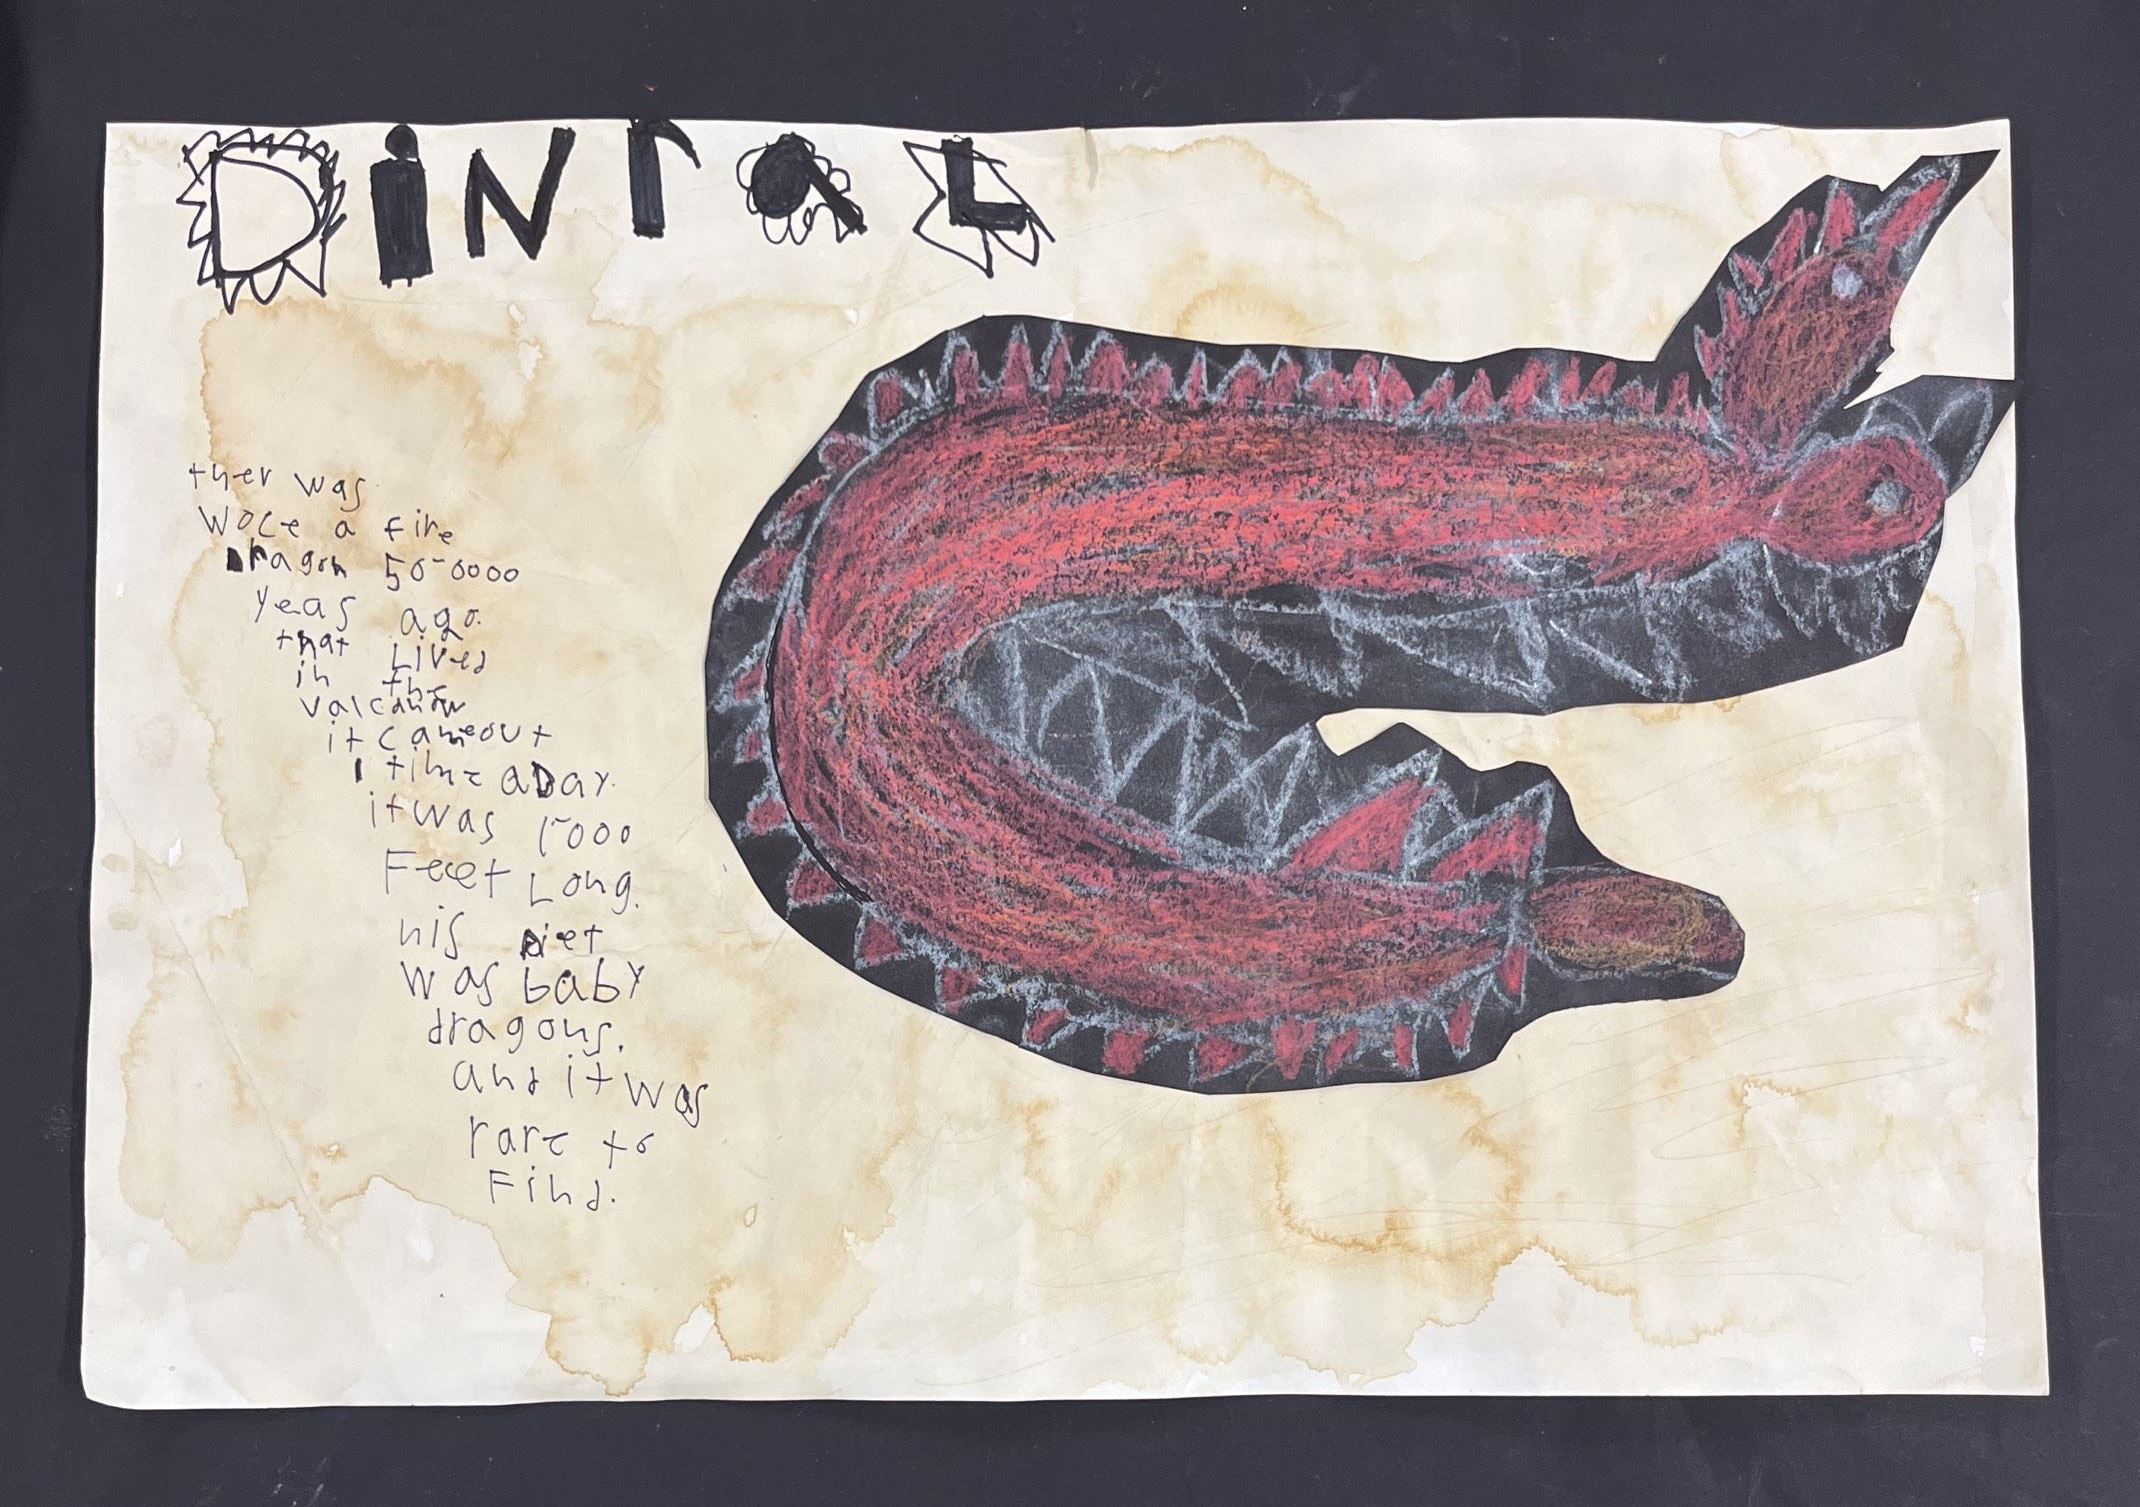 DiNraL
ther was
woce a fire
Dragon 50-0000
yeas ago.
that Lived
in the
valcanow
it cameout
1 time aDay.
it was 1-000
Feeet Long.
his Diet
was baby
dragons.
and it was
rare to
Find.